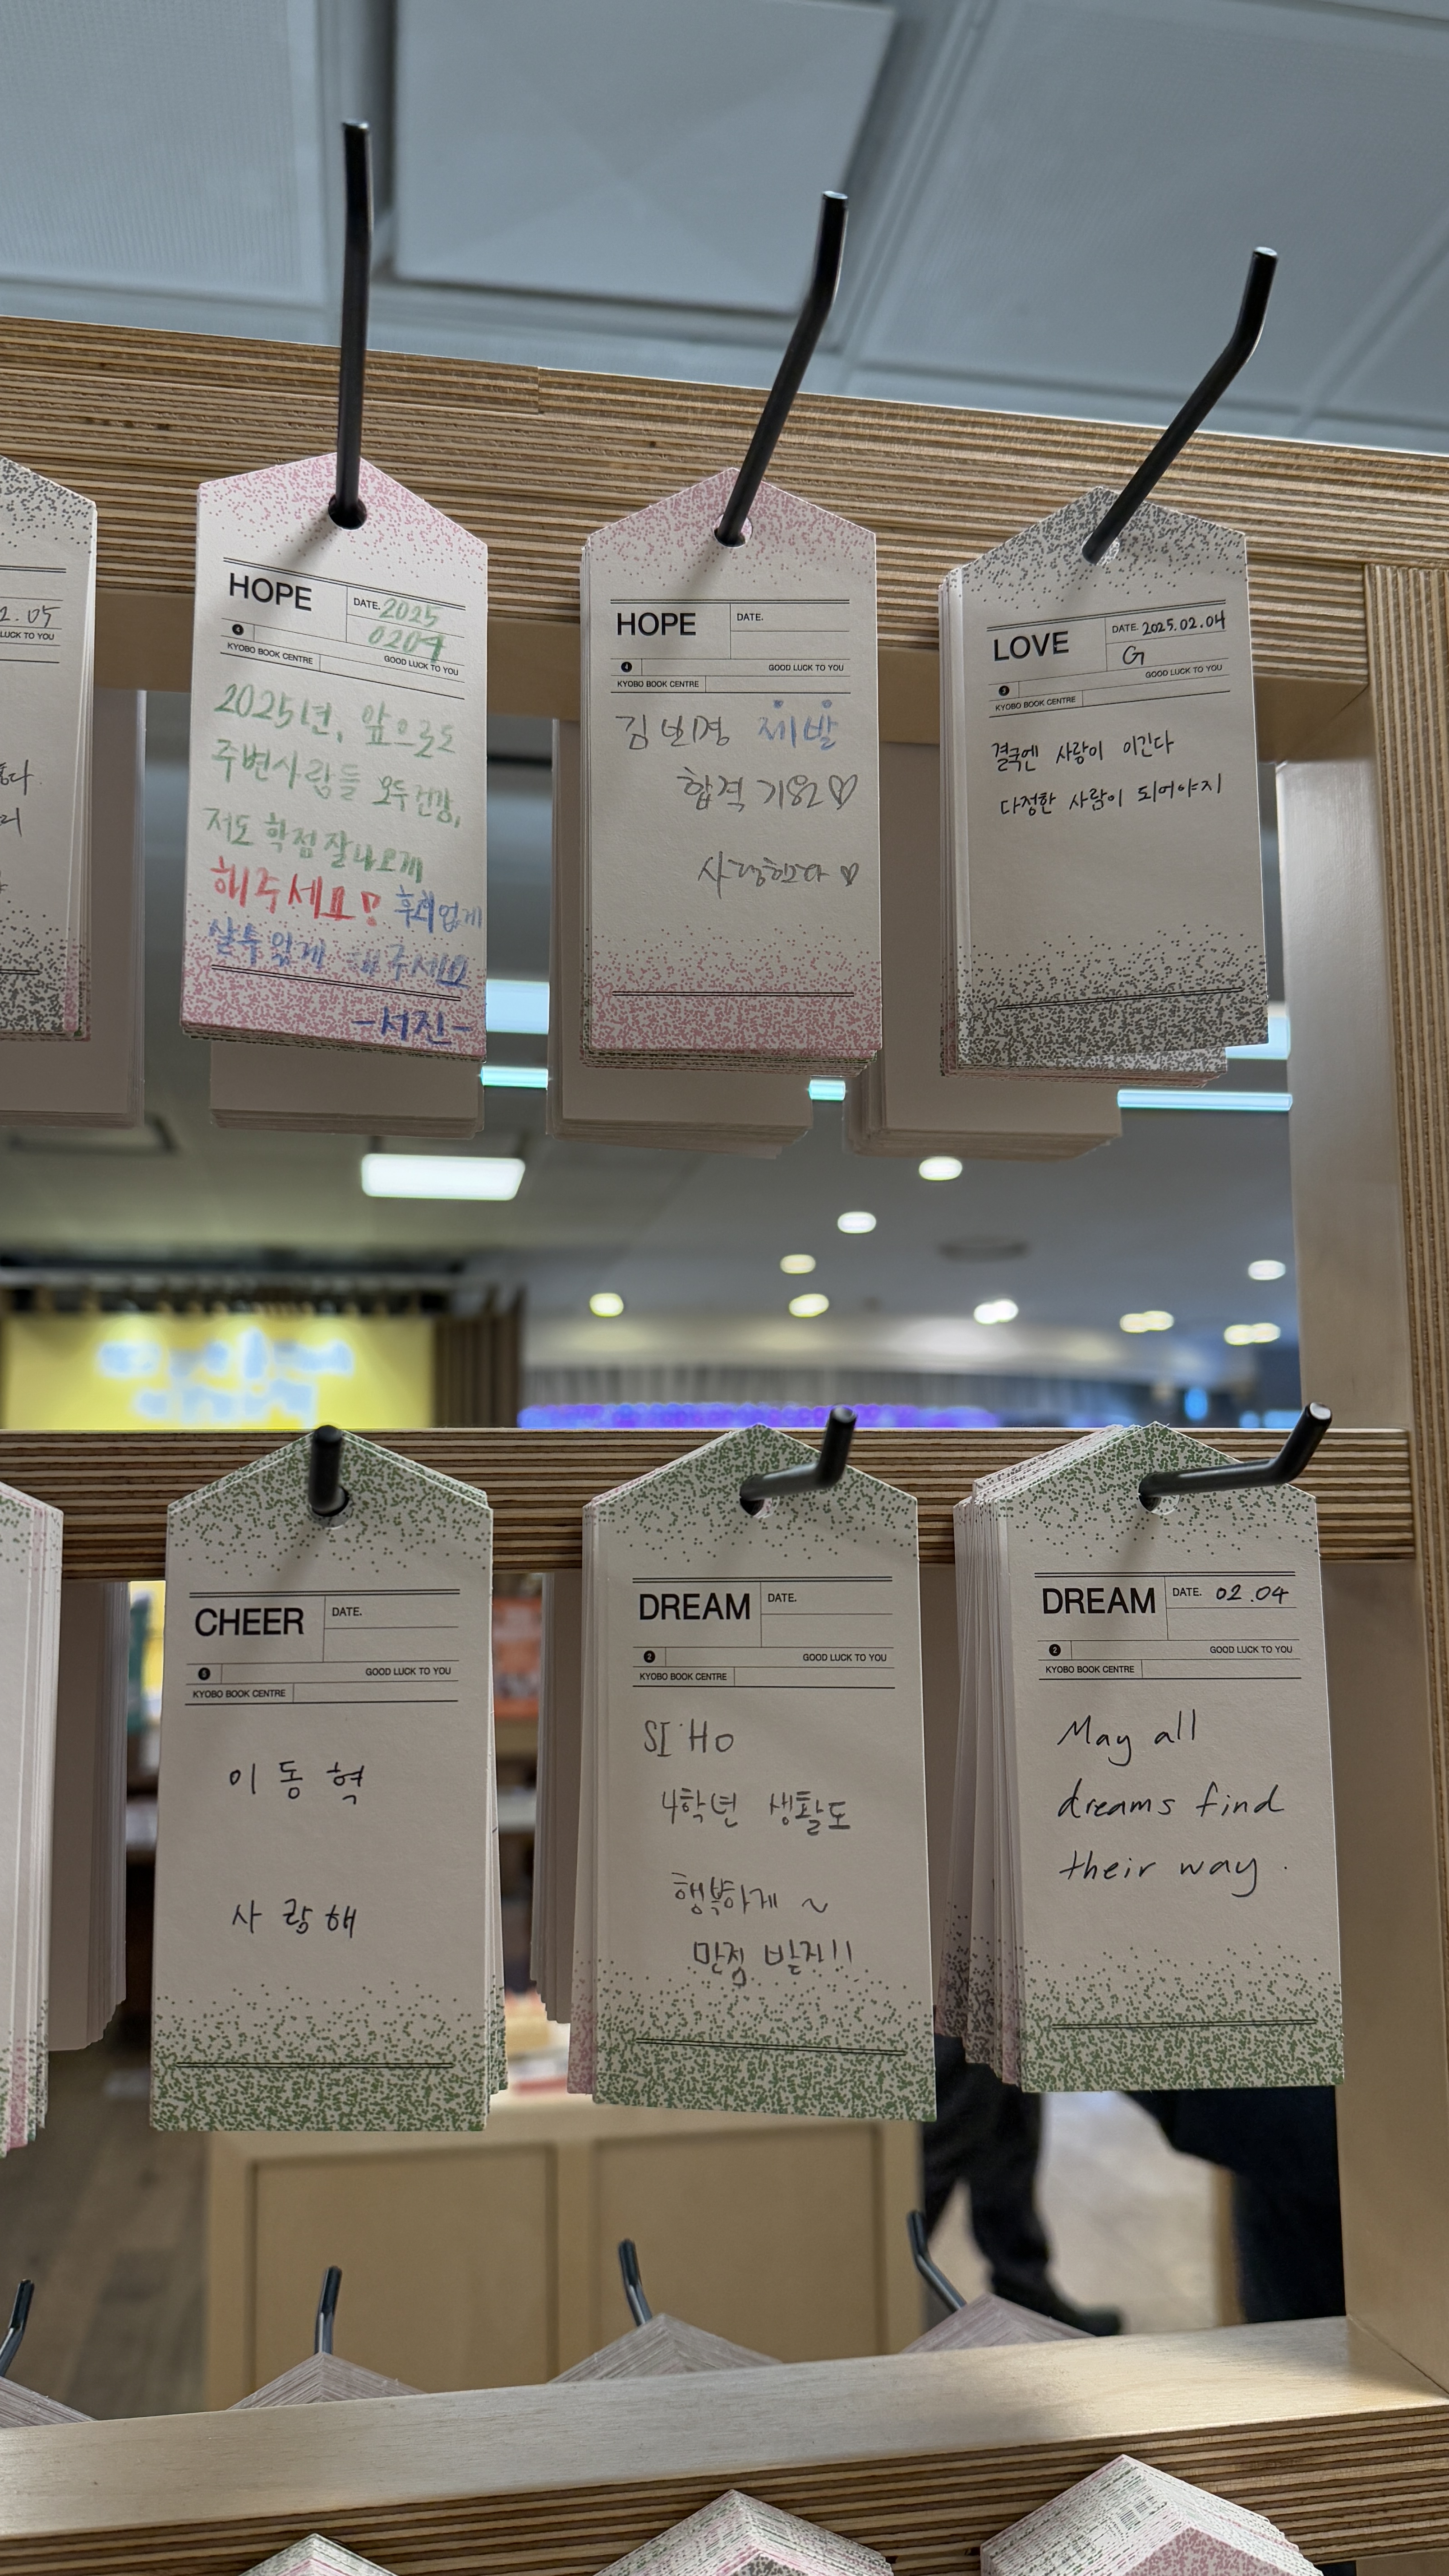 2.05
LUCK TO YOU
HOPE
DATE. 2025
0204
4
GOOD LUCK TO YOU
KYOBO BOOK CENTRE
2025년, 앞으로도
주변사람들 모두 건강,
저도 학점 잘나오게
해주세요! 후회없게
살수있게 해주세요
-서진-
HOPE
DATE.
4
GOOD LUCK TO YOU
KYOBO BOOK CENTRE
김민경 제발
합격 기원♡
사랑한다♡
LOVE
DATE. 2025.02.04
G
3
GOOD LUCK TO YOU
KYOBO BOOK CENTRE
결국엔 사랑이 이긴다
다정한 사람이 되어야지
CHEER
DATE.
5
GOOD LUCK TO YOU
KYOBO BOOK CENTRE
이동혁
사랑해
DREAM
DATE.
2
GOOD LUCK TO YOU
KYOBO BOOK CENTRE
SI HO
4학년 생활도
행복하게 ~
만점 받자!!
DREAM
DATE. 02.04
2
GOOD LUCK TO YOU
KYOBO BOOK CENTRE
May all
dreams find
their way.